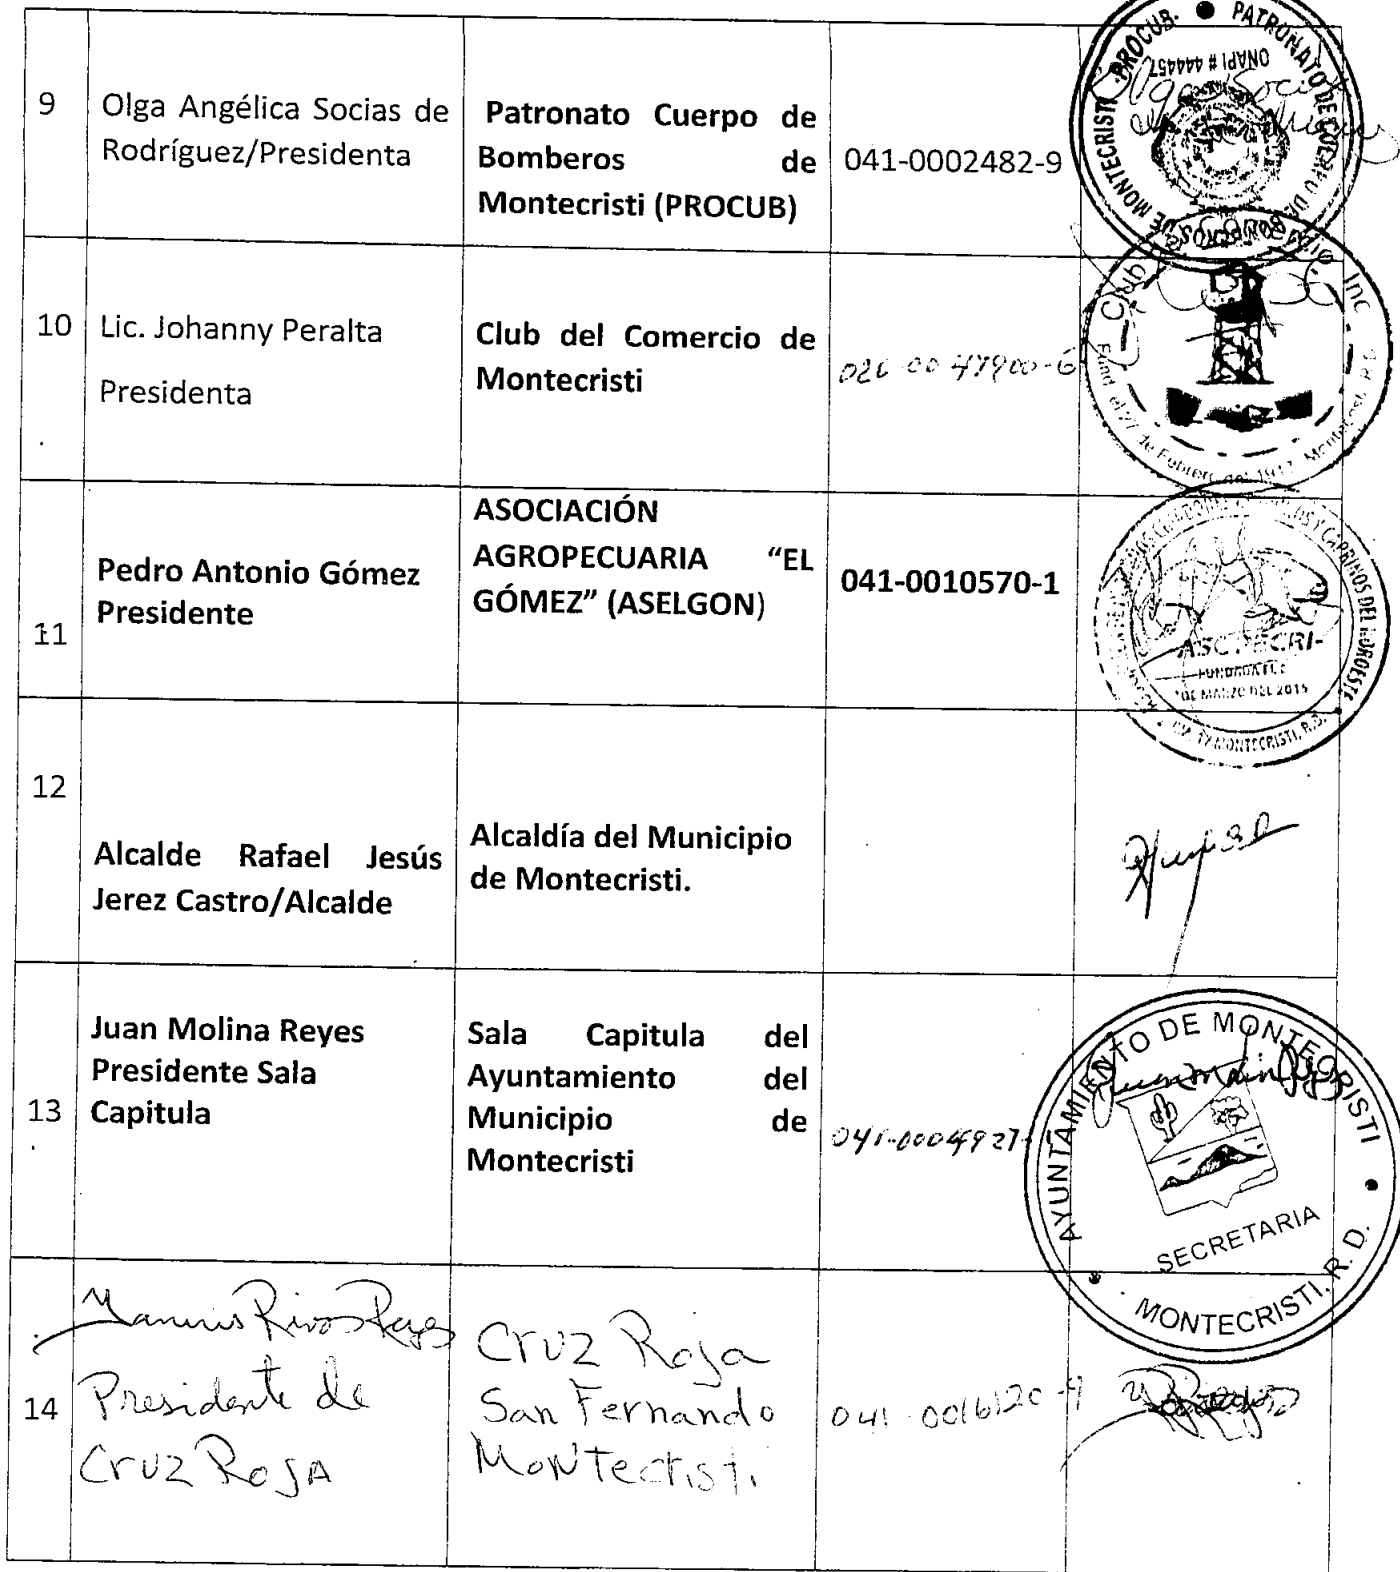 9
Olga Angélica Socias de
Rodríguez/Presidenta
Patronato Cuerpo de
Bomberos de
Montecristi (PROCUB)
041-0002482-9
PROCUB. • PATRONATO DE CUERPO DE BOMBEROS DE MONTECRISTI
ONAPI # 444457
Olga Socias
10
Lic. Johanny Peralta
Presidenta
Club del Comercio de
Montecristi
Club Inc
Fund. el 27 de Febrero del 1917. Montecristi, R.D.
11
Pedro Antonio Gómez
Presidente
ASOCIACIÓN
AGROPECUARIA "EL
GÓMEZ" (ASELGON)
041-0010570-1
Y CAPRINOS DEL NOROESTE
DE MARZO DEL 2015
MONTECRISTI, R.D.
12
Alcalde Rafael Jesús
Jerez Castro/Alcalde
Alcaldía del Municipio
de Montecristi.
13
Juan Molina Reyes
Presidente Sala
Capitula
Sala Capitula del
Ayuntamiento del
Municipio de
Montecristi
041-0004927-
AYUNTAMIENTO DE MONTECRISTI
SECRETARIA
MONTECRISTI, R. D.
14
Rivas Reyes
Presidente de
Cruz Roja
Cruz Roja
San Fernando
Montecristi
041-0016120-9